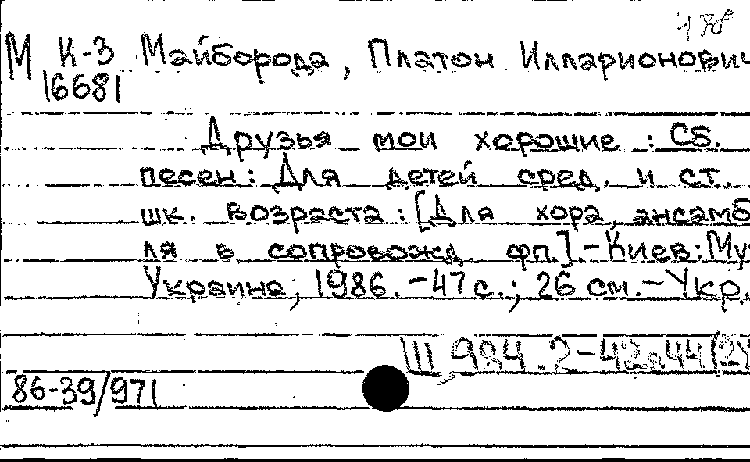 178
М К-3 Майборода, Платон Илларионович
16681
Друзья мои хорошие : Сб.
песен: Для детей сред. и ст.
шк. возраста : [Для хора, ансамб
ля в сопровожд. фп.].-Киев: Му
Украина, 1986.-47 с.; 26 см.-Укр.
III
86-39/971